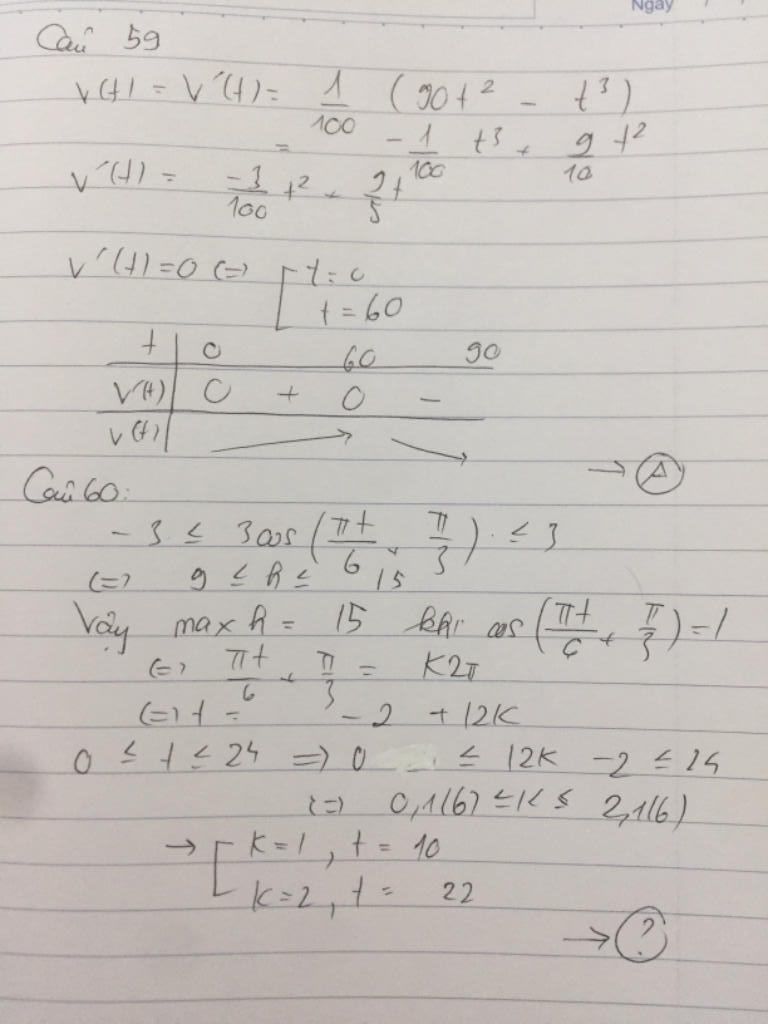 Ngày
Câu 59
v(t) = V'(t) = 1/100 (90t² - t³)
= -1/100 t³ + 9/10 t²
v'(t) = -3/100 t² + 9/5 t
v'(t) = 0 (=) [ t = 0
t = 60
t | 0 60 90
v'(t) | 0 + 0 -
v(t) | ↗ ↘
→ Ⓐ
Câu 60:
-3 ≤ 3cos(πt/6 + π/3) ≤ 3
(=) 9 ≤ h ≤ 15
Vậy max h = 15 khi cos(πt/6 + π/3) = 1
(=) πt/6 + π/3 = K2π
(=) t = -2 + 12K
0 ≤ t ≤ 24 => 0 ≤ 12K - 2 ≤ 24
(=) 0,1(6) ≤ K ≤ 2,1(6)
→ [ K = 1, t = 10
K = 2, t = 22
→ ?